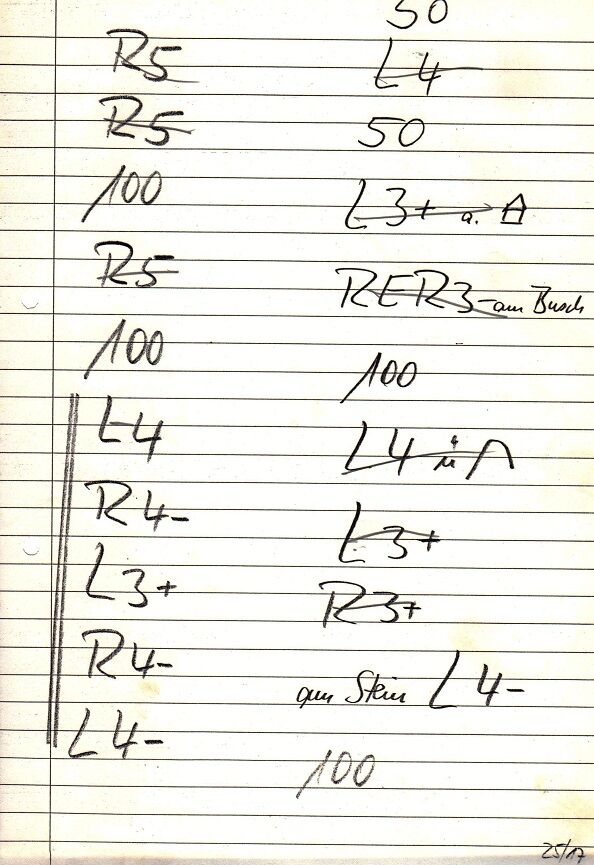 R5
R5
100
R5
100
L4
R4-
L3+
R4-
L4-
50
L4
50
L3+ a.
RER3- am Busch
100
L4 ü
L3+
R3+
am Stein L4-
100
25/17